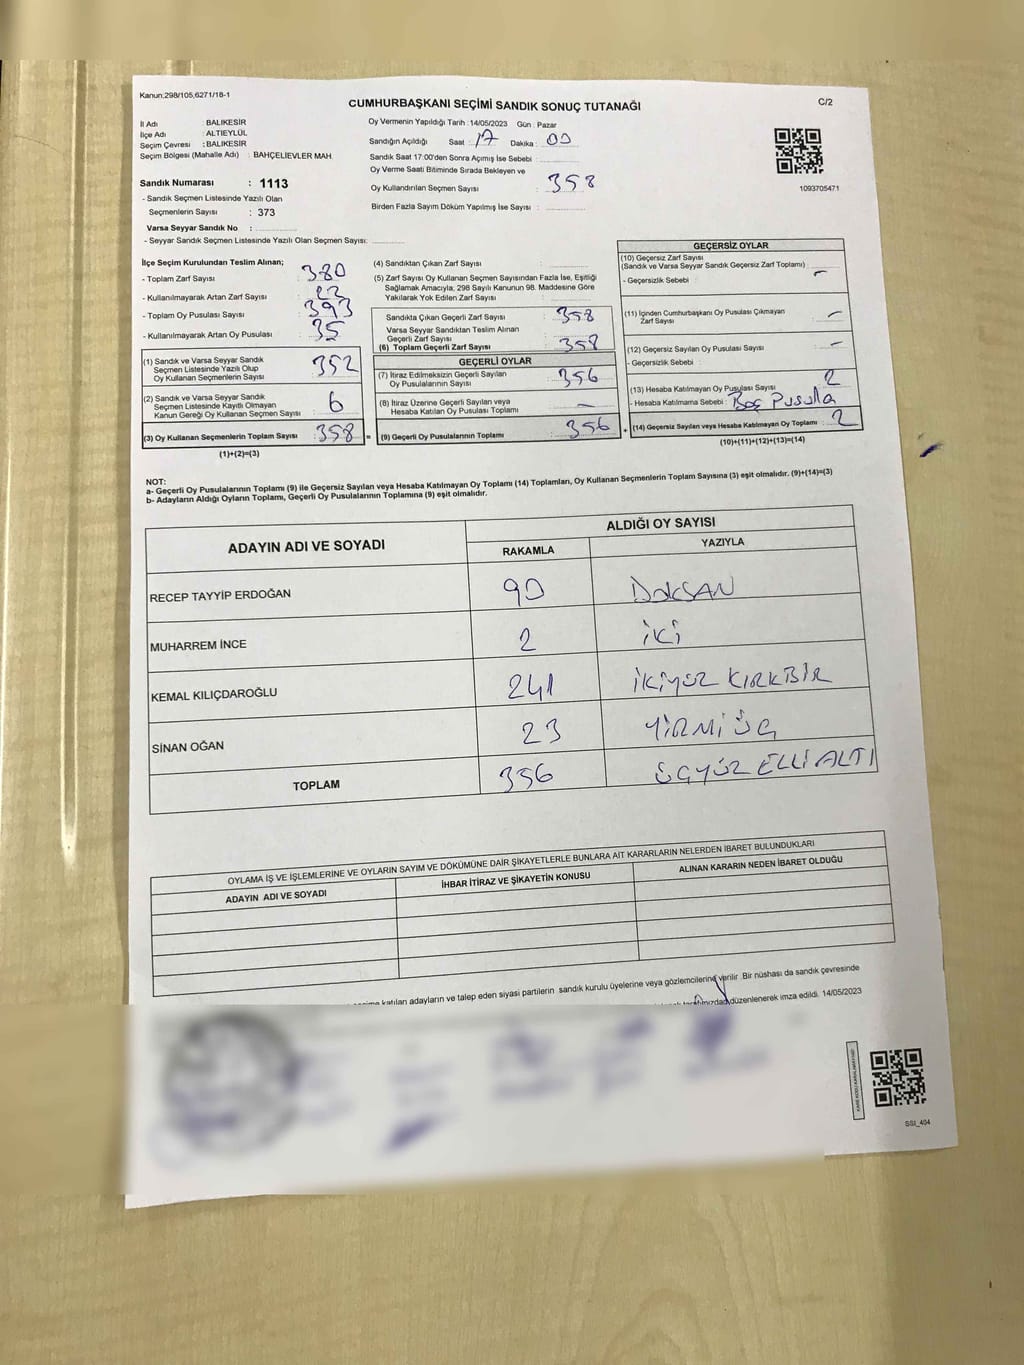 Kanun:298/105,6271/18-1
CUMHURBAŞKANI SEÇİMİ SANDIK SONUÇ TUTANAĞI
C/2
İl Adı : BALIKESİR
İlçe Adı : ALTIEYLÜL
Seçim Çevresi : BALIKESİR
Seçim Bölgesi (Mahalle Adı) : BAHÇELİEVLER MAH.
Oy Vermenin Yapıldığı Tarih : 14/05/2023 Gün : Pazar
Sandığın Açıldığı Saat : 17 Dakika : 00
Sandık Saat 17:00'den Sonra Açımış İse Sebebi :
Oy Verme Saati Bitiminde Sırada Bekleyen ve
Oy Kullandırılan Seçmen Sayısı : 358
Birden Fazla Sayım Döküm Yapılmış İse Sayısı :
1093705471
Sandık Numarası : 1113
- Sandık Seçmen Listesinde Yazılı Olan
Seçmenlerin Sayısı : 373
Varsa Seyyar Sandık No :
- Seyyar Sandık Seçmen Listesinde Yazılı Olan Seçmen Sayısı:
İlçe Seçim Kurulundan Teslim Alınan;
- Toplam Zarf Sayısı : 380
- Kullanılmayarak Artan Zarf Sayısı
- Toplam Oy Pusulası Sayısı : 393
- Kullanılmayarak Artan Oy Pusulası : 35
(1) Sandık ve Varsa Seyyar Sandık
Seçmen Listesinde Yazılı Olup
Oy Kullanan Seçmenlerin Sayısı : 352
(2) Sandık ve Varsa Seyyar Sandık
Seçmen Listesinde Kayıtlı Olmayan
Kanun Gereği Oy Kullanan Seçmen Sayısı : 6
(3) Oy Kullanan Seçmenlerin Toplam Sayısı : 358 =
(1)+(2)=(3)
(4) Sandıktan Çıkan Zarf Sayısı :
(5) Zarf Sayısı Oy Kullanan Seçmen Sayısından Fazla İse, Eşitliği
Sağlamak Amacıyla, 298 Sayılı Kanunun 98. Maddesine Göre
Yakılarak Yok Edilen Zarf Sayısı :
Sandıkta Çıkan Geçerli Zarf Sayısı : 358
Varsa Seyyar Sandıktan Teslim Alınan
Geçerli Zarf Sayısı :
(6) Toplam Geçerli Zarf Sayısı : 358
GEÇERLİ OYLAR
(7) İtiraz Edilmeksizin Geçerli Sayılan
Oy Pusulalarının Sayısı : 356
(8) İtiraz Üzerine Geçerli Sayılan veya
Hesaba Katılan Oy Pusulası Toplamı : -
(9) Geçerli Oy Pusulalarının Toplamı : 356 +
GEÇERSİZ OYLAR
(10) Geçersiz Zarf Sayısı
(Sandık ve Varsa Seyyar Sandık Geçersiz Zarf Toplamı) :
- Geçersizlik Sebebi : -
(11) İçinden Cumhurbaşkanı Oy Pusulası Çıkmayan
Zarf Sayısı : -
(12) Geçersiz Sayılan Oy Pusulası Sayısı : -
- Geçersizlik Sebebi :
(13) Hesaba Katılmayan Oy Pusulası Sayısı : 2
- Hesaba Katılmama Sebebi : Boş Pusula
(14) Geçersiz Sayılan veya Hesaba Katılmayan Oy Toplamı : 2
(10)+(11)+(12)+(13)=(14)
NOT:
a- Geçerli Oy Pusulalarının Toplamı (9) ile Geçersiz Sayılan veya Hesaba Katılmayan Oy Toplamı (14) Toplamları, Oy Kullanan Seçmenlerin Toplam Sayısına (3) eşit olmalıdır. (9)+(14)=(3)
b- Adayların Aldığı Oyların Toplamı, Geçerli Oy Pusulalarının Toplamına (9) eşit olmalıdır.
ADAYIN ADI VE SOYADI ALDIĞI OY SAYISI
RAKAMLA YAZIYLA
RECEP TAYYİP ERDOĞAN 90 DOKSAN
MUHARREM İNCE 2 İKİ
KEMAL KILIÇDAROĞLU 241 İKİYÜZ KIRKBİR
SİNAN OĞAN 23 YİRMİ ÜÇ
TOPLAM 356 ÜÇYÜZ ELLİ ALTI
OYLAMA İŞ VE İŞLEMLERİNE VE OYLARIN SAYIM VE DÖKÜMÜNE DAİR ŞİKAYETLERLE BUNLARA AİT KARARLARIN NELERDEN İBARET BULUNDUKLARI
ADAYIN ADI VE SOYADI İHBAR İTİRAZ VE ŞİKAYETİN KONUSU ALINAN KARARIN NEDEN İBARET OLDUĞU
katılan adayların ve talep eden siyasi partilerin sandık kurulu üyelerine veya gözlemcilerine verilir. Bir nüshası da sandık çevresinde
düzenlenerek imza edildi. 14/05/2023
SSI_404